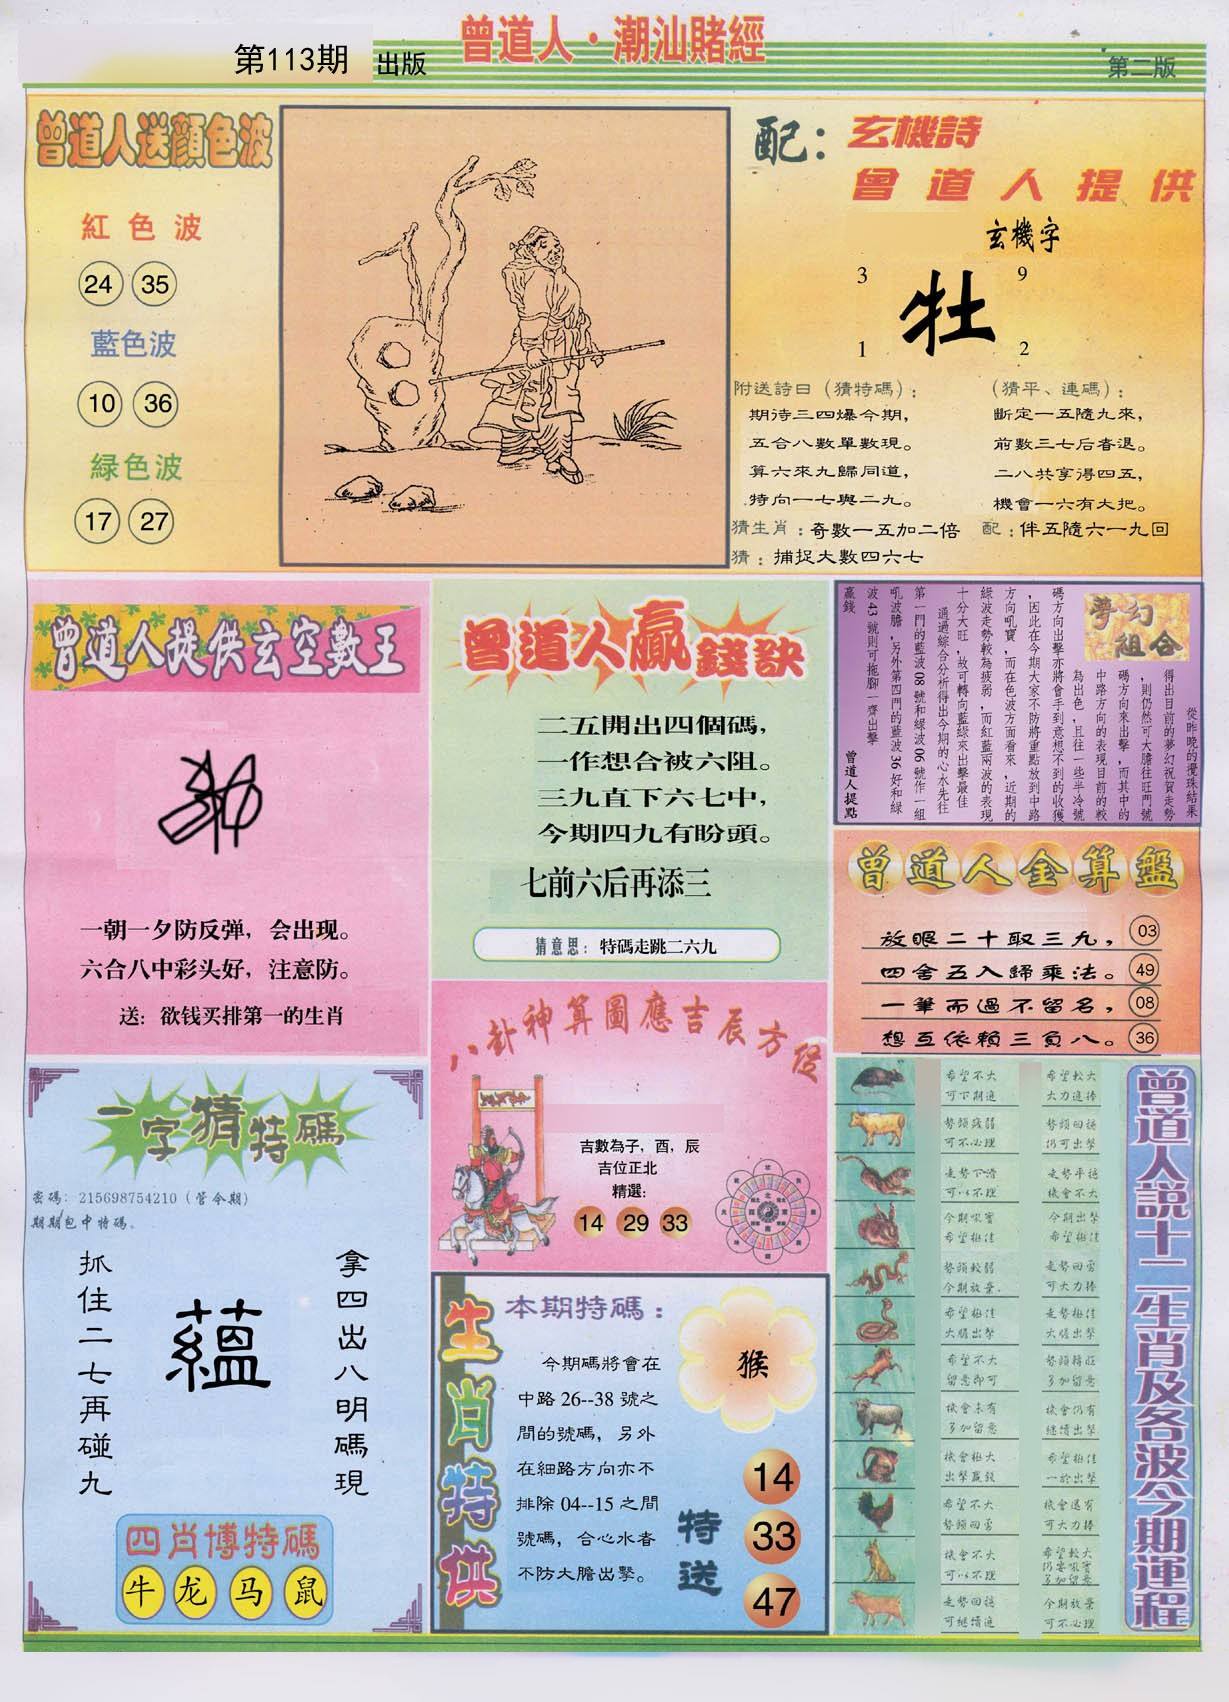 曾道人·潮汕賭經
第113期 出版
第二版
曾道人送顏色波
紅色波
24 35
藍色波
10 36
緑色波
17 27
配：玄機詩
曾道人提供
玄機字
3 9
牡
1 2
附送詩曰（猜特碼）：
期待三四爆今期，
五合八數單數現。
算六來九歸同道，
特向一七與二九。
（猜平、連碼）：
斷定一五隨九來，
前數三七后者退。
二八共享得四五，
機會一六有大把。
猜生肖：奇數一五加二倍
配：伴五隨六一九回
猜：捕捉大數四六七
曾道人提供玄空數王
一朝一夕防反弹，会出现。
六合八中彩头好，注意防。
送：欲钱买排第一的生肖
曾道人贏錢訣
二五開出四個碼，
一作想合被六阻。
三九直下六七中，
今期四九有盼頭。
七前六后再添三
猜意思：特碼走跳二六九
夢幻組合
從昨晚的攪珠結果
得出目前的夢幻祝賀走勢
，則仍然可大膽往旺門號
碼方向來出擊，而其中的
中路方向的表現目前的較
為出色，且往一些半冷號
碼方向出擊亦將會手到意想不到的收獲
，因此在今期大家不防將重點放到中路
方向吼寶，而在色波方面看來，近期的
綠波走勢較為疲弱，而紅藍兩波的表現
十分大旺，故可轉向藍綠來出擊最佳
通過綜合分析得出今期的心水先往
第一門的藍波08號和綠波06號作一組
吼波膽，另外第四門的藍波36好和綠
波43號則可拖腳一齊出擊
贏錢
曾道人提點
曾道人金算盤
放眼二十取三九， 03
四舍五入歸乘法。 49
一筆而過不留名， 08
想互依賴三負八。 36
八卦神算圖應吉辰方位
吉數為子，酉，辰
吉位正北
精選：
14 29 33
一字猜特碼
密碼：215698754210（管今期）
期期包中特碼。
拿四出八明碼現
蘊
抓住二七再碰九
四肖博特碼
牛 龙 马 鼠
生肖特供
本期特碼：
猴
今期碼將會在
中路26--38號之
間的號碼，另外
在細路方向亦不
排除04--15之間
號碼，合心水者
不防大膽出擊。
特送
14
33
47
曾道人説十二生肖及各波今期運程
希望不大
可下期進
希望較大
大力進捧
勢頭殘弱
可不必理
勢頭回穩
仍可出擊
走勢下滑
可以不理
走勢平穩
機會不大
今期吼寶
希望極佳
今期出擊
希望極佳
勢頭較弱
今期放棄.
走勢回勇
可大力捧
希望極佳
大膽出擊
走勢極佳
大膽出擊
希望不大
留意即可
勢頭轉旺
多加留意
機會未有
多加留意
機會仍有
繼續出擊
機會極大
出擊贏錢
希望極佳
一於出擊
希望不大
勢頭回勇
機會還有
可大力捧
機會不大
可以不理
希望較大
仍要吼寶
多加留意
走勢回穩
可繼續進
今期放棄
可不必理